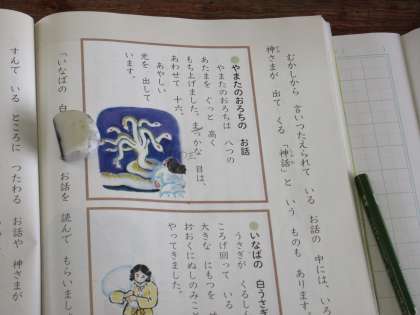 むかしから 言いつたえられて いる お話の 中には、いろ
神さまが 出て くる「神話」と いう ものも あります。
やまたのおろちの お話
やまたのおろちは 八つの
あたまを ぐっと 高く
もち上げました。まっかな 目は、
あわせて 十六。
あやしい
光を 出して
います。
いなばの 白うさぎ
うさぎが くるしく
ころげ回って いる
大きな にもつを
おおくにぬしのみこ
やってきました。
「いなばの 白 お話を 読んで もらいまし
すんで いる ところに つたわる お話や 神さまが